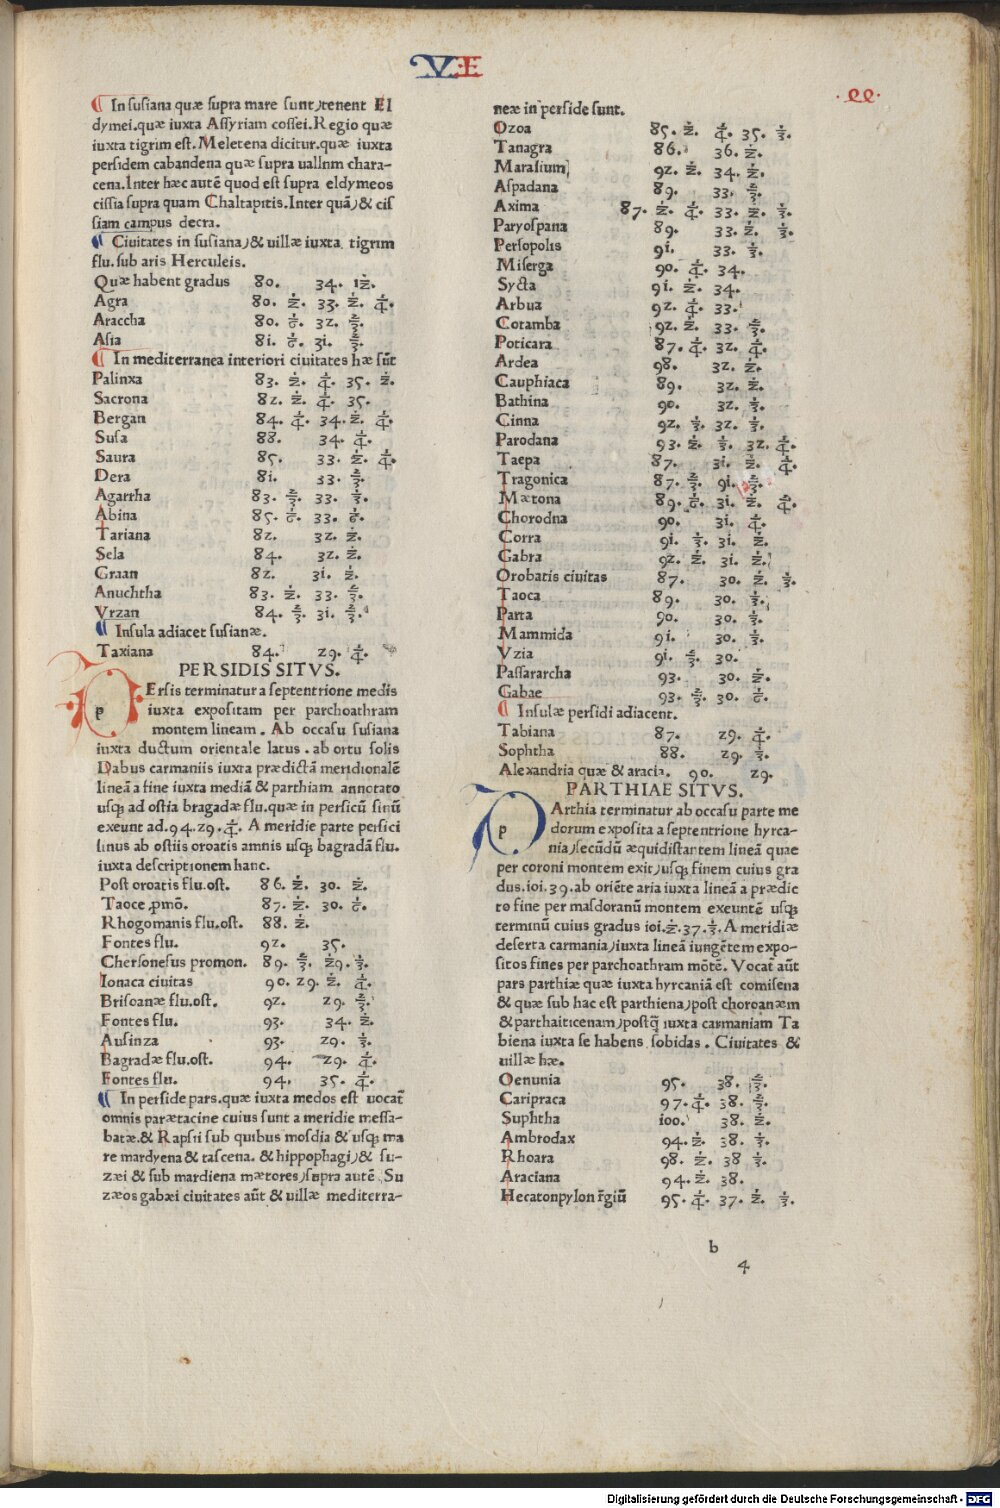 VI
.ee.
In susiana quæ supra mare sunt, tenent El
dymei.quæ iuxta Assyriam cossei.Regio quæ
iuxta tigrim est.Meletena dicitur.quæ iuxta
persidem cabandena quæ supra uallnm chara-
cena.Inter hæc autē quod est supra eldymeos
cissia supra quam Chaltapitis.Inter quā,& cis
siam campus decra.
Ciuitates in susiana,& uillæ iuxta tigrim
flu.sub aris Herculeis.
Quæ habent gradus 80. 34. 1Z.
Agra 80. ż. 33. ż. 4̇.
Araccha 80. 6̇. 3z. 3̇.
Asia 8i. 6̇. 3i. 3̇.
In mediterranea interiori ciuitates hæ sūt
Palinxa 83. ż. 4̇. 35. ż.
Sacrona 8z. ż. 4̇. 35.
Bergan 84. 4̇. 34. ż. 4̇.
Susa 88. 34. 4̇.
Saura 85. 33. ż. 4̇.
Dera 8i. 33. 3̇.
Agarrha 83. 3̇. 33. 3̇.
Abina 85. 6̇. 33. 6̇.
Tariana 8z. 3z. ż.
Sela 84. 3z. ż.
Graan 8z. 3i. ż.
Anuchtha 83. ż. 33. 3̇.
Vrzan 84. 3̇. 3i. 3̇.
Insula adiacet susianæ.
Taxiana 84. z9. 4̇.
PERSIDIS SITVS.
p Ersis terminatur a septentrione medis
iuxta expositam per parchoathram
montem lineam . Ab occasu susiana
iuxta ductum orientale latus . ab ortu solis
Dabus carmaniis iuxta prædictā meridionalē
lineā a fine iuxta mediā & parthiam annotato
usq; ad ostia bragadæ flu.quæ in persicū sinū
exeunt ad.94.z9.4̇. A meridie parte persici
sinus ab ostiis oroatis amnis usq; bagradā flu.
iuxta descriptionem hanc.
Post oroatis flu.ost. 86. ż. 30. ż.
Taoce ꝓmō. 87. ż. 30. 6̇.
Rhogomanis flu.ost. 88. ż.
Fontes flu. 9z. 35.
Chersonesus promon. 89. 3̇. ż9. 3̇.
Ionaca ciuitas 90. z9. ż. 4̇.
Brisoanæ flu.ost. 9z. z9. 3̇.
Fontes flu. 93. 34. ż.
Ausinza 93. z9. 3̇.
Bagradæ flu.ost. 94. z9. 4̇.
Fontes flu. 94. 35. 4̇.
In perside pars.quæ iuxta medos est uocat̄
omnis parætacine cuius sunt a meridie messa-
batæ.& Rapsii sub quibus mosdia & usq; ma
re mardyena & tascena. & hippophagi,& su-
zæi & sub mardiena mætores,supra autē Su
zæos gabæi ciuitates aūt & uillæ mediterra-
neæ in perside sunt.
Ozoa 85. ż. 4̇. 35. 3̇.
Tanagra 86. 36. ż.
Marasium 9z. ż. 34. ż.
Aspadana 89. 33. 3̇.
Axima 87. ż. 4̇. 33. ż. 3̇.
Paryospana 89. 33. ż. 3̇.
Persopolis 9i. 33. 3̇.
Miserga 90. 4̇. 34.
Sycta 9i. ż. 34.
Arbua 9z. 4̇. 33.
Cotamba 9z. ż. 33. 3̇.
Poticara 87. 4̇. 3z. 4̇.
Ardea 98. 3z. ż.
Cauphiaca 89. 3z. ż.
Bathina 90. 3z. 3̇.
Cinna 9z. 3̇. 3z. 3̇.
Parodana 93. ż. 3̇. 3z. 4̇.
Taepa 87. 3i. ż. 4̇.
Tragonica 87. 3̇. 9i. 3̇.
Mætona 89. 6̇. 3i. ż. 4̇.
Chorodna 90. 3i. 4̇.
Corra 9i. 3̇. 3i. ż.
Gabra 9z. ż. 3i. ż.
Orobatis ciuitas 87. 30. ż. 3̇.
Taoca 89. 30. 3̇.
Parta 90. 30. 3̇.
Mammida 9i. 30. 3̇.
Vzia 9i. 3̇. 30.
Passararcha 93. 30. ż.
Gabae 93. 3̇. 30. 6̇.
Insulæ persidi adiacent.
Tabiana 87. z9. 4̇.
Sophtha 88. z9. 3̇.
Alexandria quæ & aracia. 90. z9.
PARTHIAE SITVS.
p Arthia terminatur ab occasu parte me
dorum exposita a septentrione hyrca-
nia,secūdū æquidistantem lineā quae
per coroni montem exit,usq; finem cuius gra
dus.ioi.39.ab oriēte aria iuxta lineā a prædic
to fine per masdoranū montem exeuntē usq;
terminū cuius gradus ioi.ż.37.3̇.A meridiæ
deserta carmania,iuxta lineā iungētem expo-
sitos fines per parchoathram mōtē. Vocat̄ aūt
pars parthiæ quæ iuxta hyrcaniā est comisena
& quæ sub hac est parthiena,post choroanæm
& parthaiticenam,postq̄ iuxta carmaniam Ta
biena iuxta se habens sobidas . Ciuitates &
uillæ hæ.
Oenunia 95. 38. 3̇.
Caripraca 97. 4̇. 38. 3̇.
Suphtha ioo. 38. ż.
Ambrodax 94. ż. 38. 3̇.
Rhoara 98. ż. 38 3̇.
Araciana 94. ż. 38.
Hecatonpylon r̄giū 95. 4̇. 37. ż. 3̇.
b
4
Digitalisierung gefördert durch die Deutsche Forschungsgemeinschaft - DFG